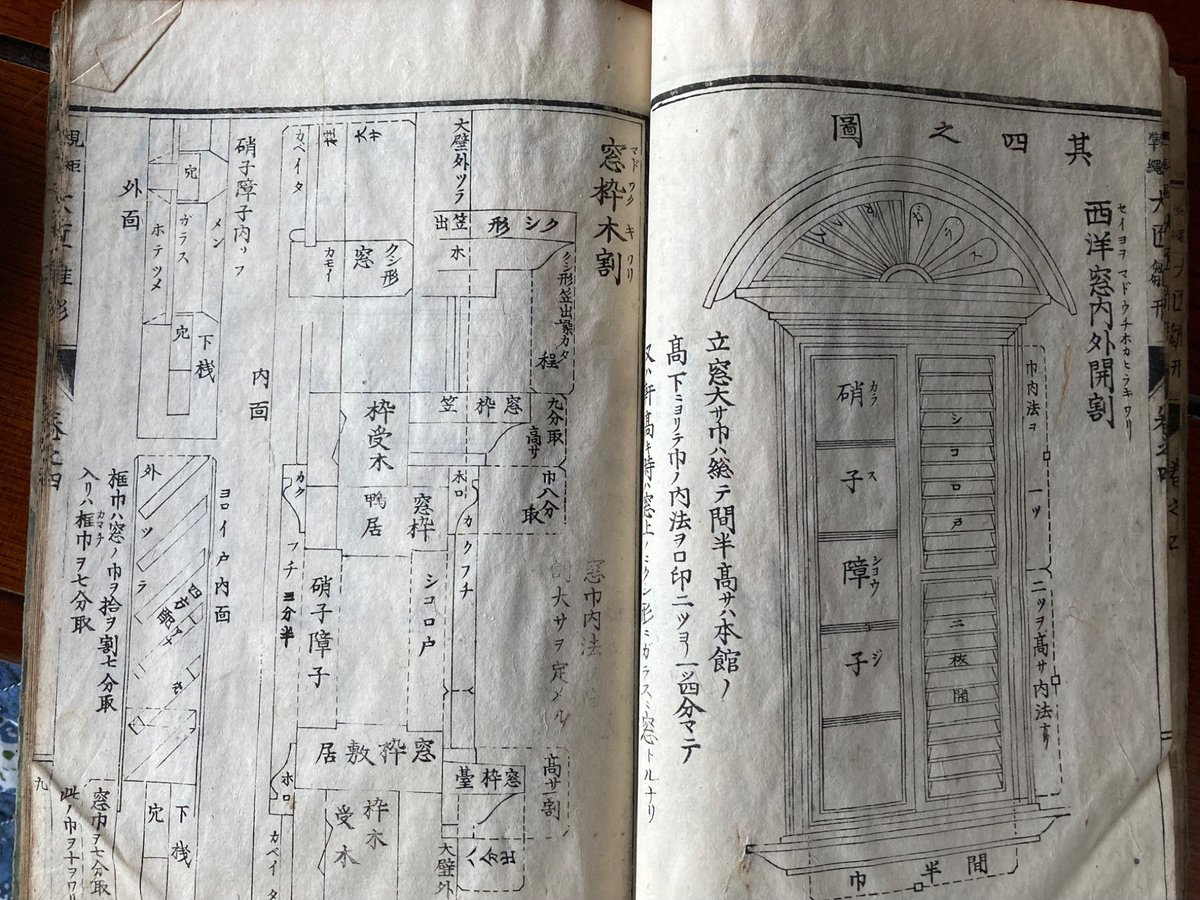 其四之圖
西洋窓内外開割
セイヨヲマドウチホカヒラキワリ
巾内法ヲ
一ツ
二ツヲ高サ内法ナリ
ガラス
シコロ戸
二枚開
硝子障子
カラス シヨウジ
巾 半 間
立窓大サ巾ハ総テ間半高サハ本館ノ
高下ニヨリテ巾ノ内法ヲロ印二ツヨリ一ツ四分マテ
窓枠木割
マドワクキワリ
大壁外ツラ
クシ形笠出
木
クシ形笠出繰カタ
程
九分取
高サ
巾八分
取
窓巾内法
大サヲ定メル
高サ一割
カベイタ
柱
クシ形
窓
カモイ
窓枠笠
枠受木
鴨居
窓枠
木口
カクフチ
シコロ戸
硝子障子
カクフチ三分半
窓枠敷居
窓枠臺
枠木
受木
ホロ
カベイタ
大壁外
内面
硝子障子内ツラ
外面
メン
ガラス
ホテツメ
穴
穴
下桟
ヨロイ戸内面
外ツラ
下桟
穴
框巾ハ窓ノ巾ヲ拾ヲ割七分取
カマチ
入リハ框巾ヲ七分取
窓巾ヲ七分取
此ノ巾ヲ十ヲワリ
巻之四
九